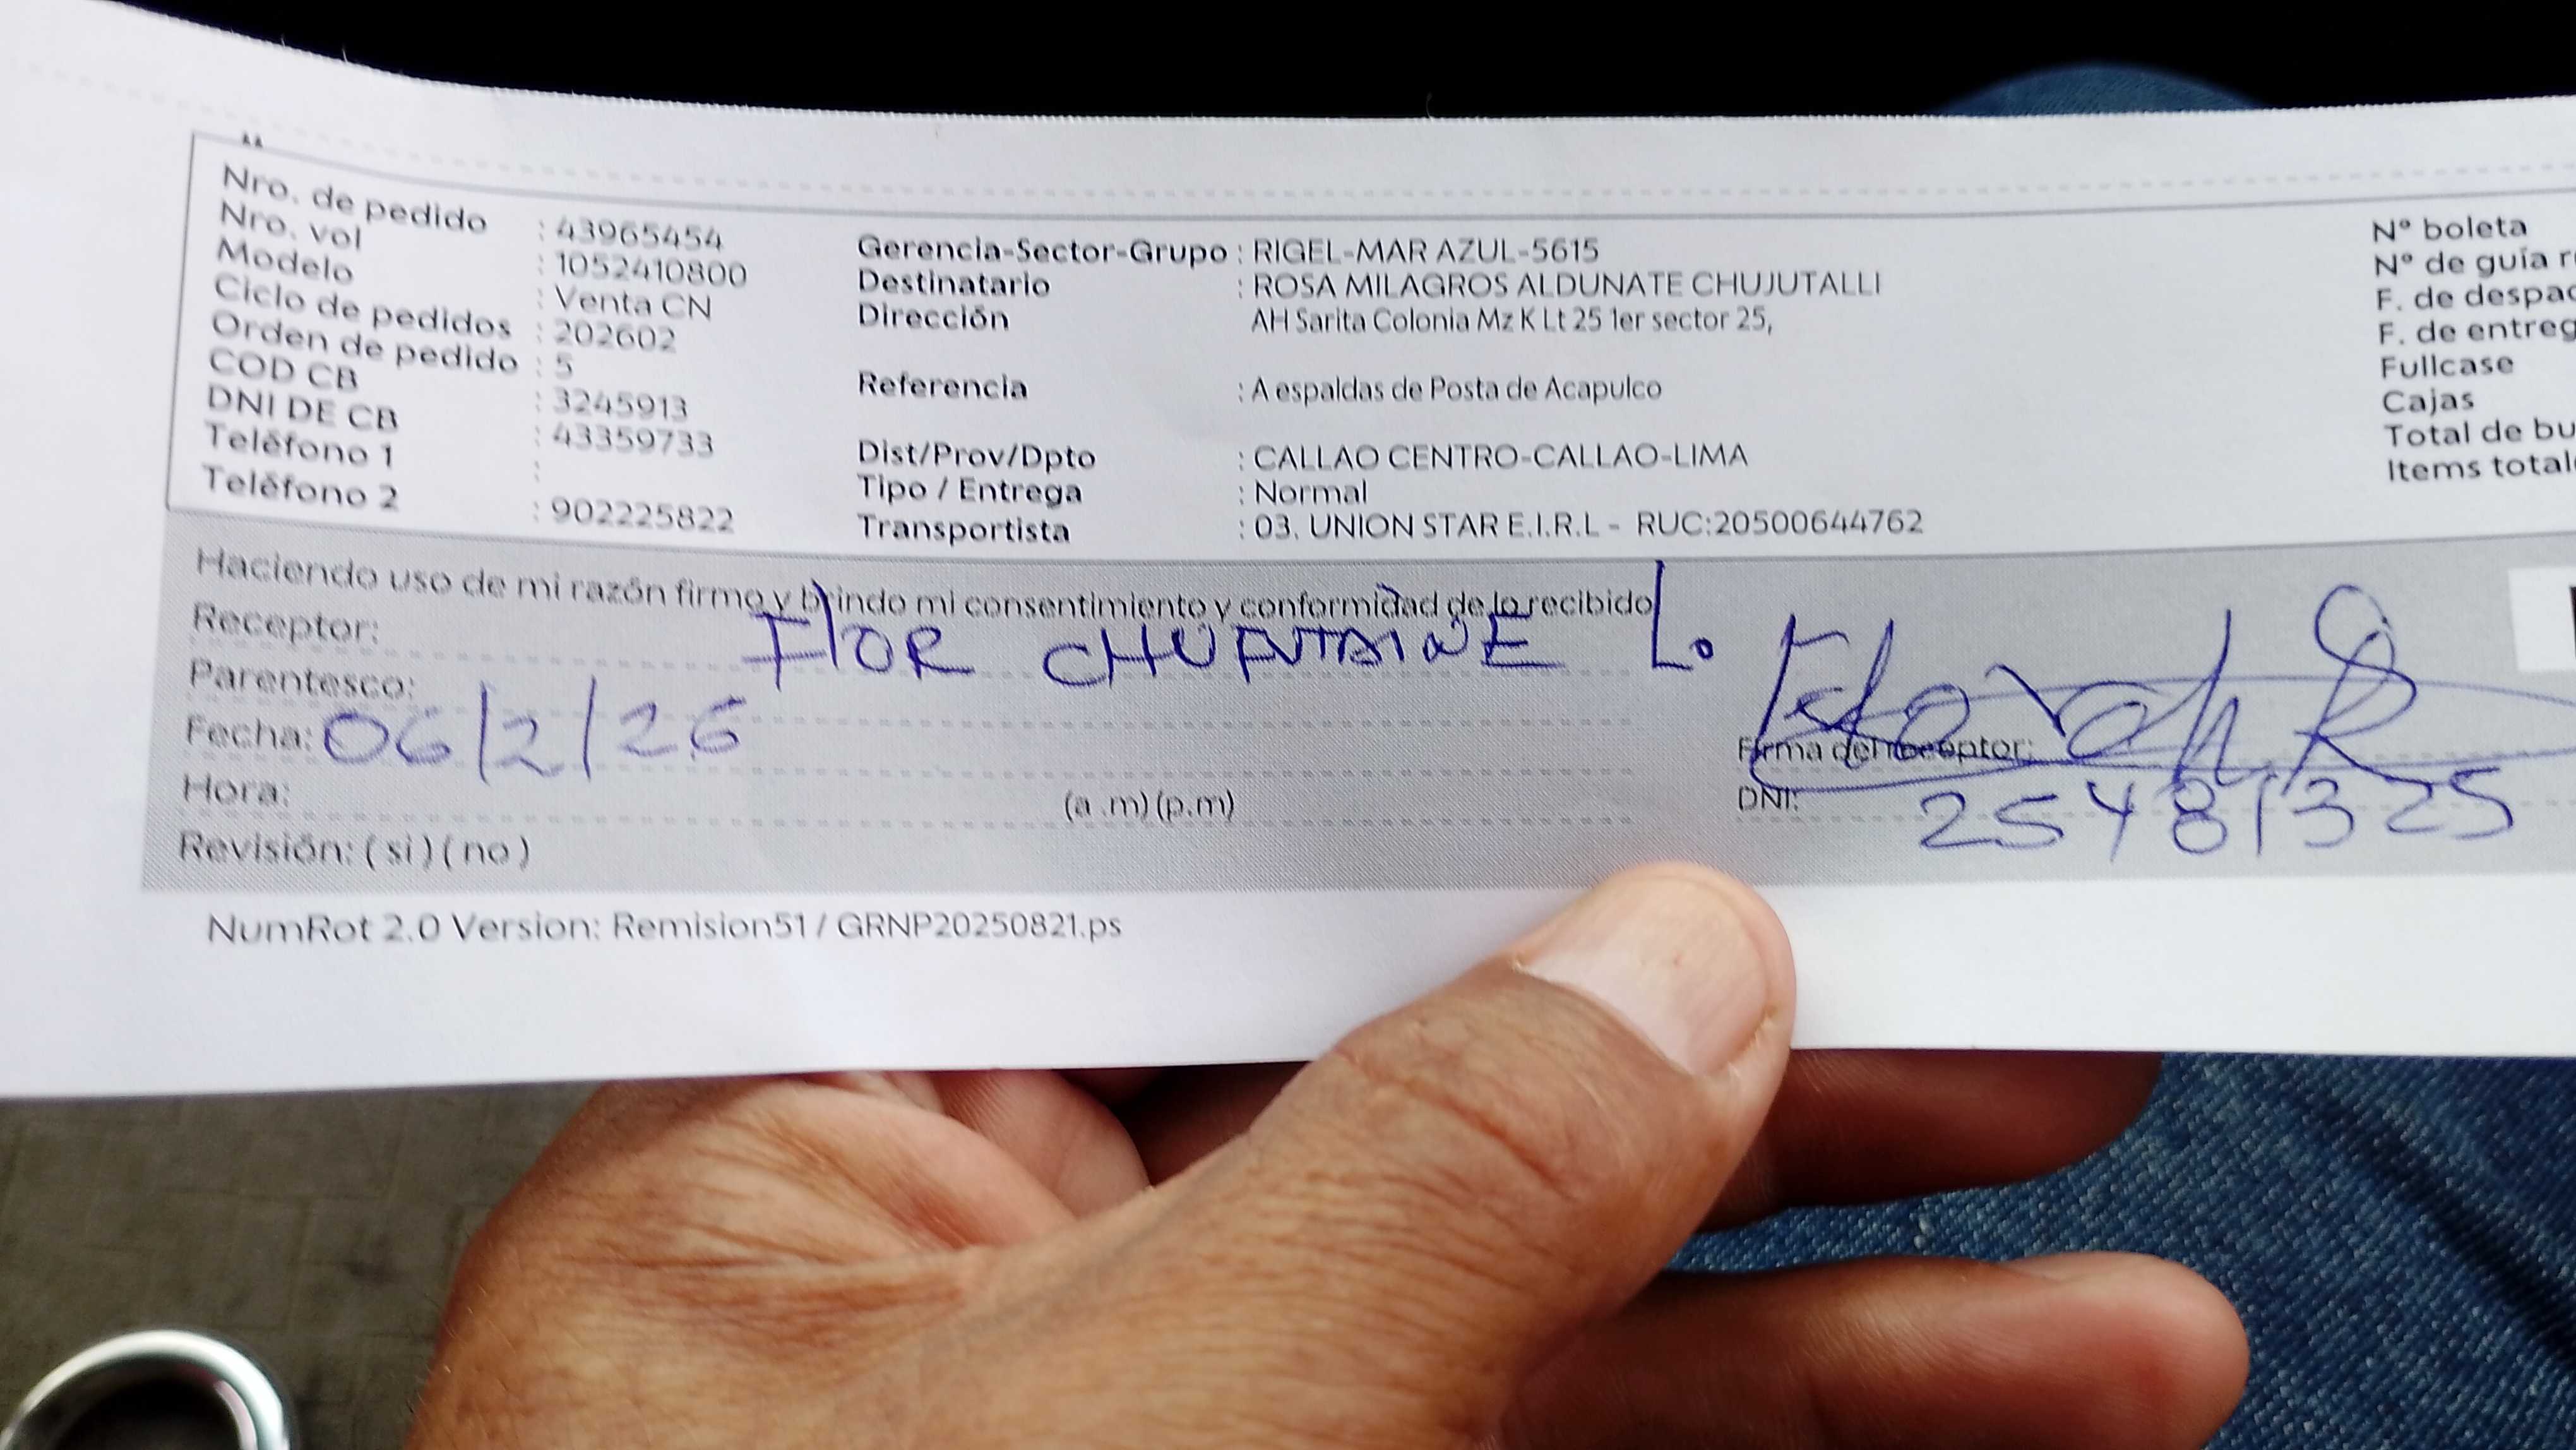 Nro. de pedido : 43965454
Nro. vol : 1052410800
Modelo : Venta CN
Ciclo de pedidos : 202602
Orden de pedido : 5
COD CB : 3245913
DNI DE CB : 43359733
Teléfono 1 :
Teléfono 2 : 902225822
Gerencia-Sector-Grupo : RIGEL-MAR AZUL-5615
Destinatario : ROSA MILAGROS ALDUNATE CHUJUTALLI
Dirección AH Sarita Colonia Mz K Lt 25 1er sector 25,
Referencia : A espaldas de Posta de Acapulco
Dist/Prov/Dpto : CALLAO CENTRO-CALLAO-LIMA
Tipo / Entrega : Normal
Transportista : 03. UNION STAR E.I.R.L - RUC:20500644762
N° boleta
N° de guía
F. de
F. de
Fullcase
Cajas
Total de
Items
Haciendo uso de mi razón firmo y brindo mi consentimiento y conformidad de lo recibido
Receptor: FlOR L.
Parentesco:
Fecha: 06/2/26
Hora: (a .m) (p.m)
Revisión: ( si ) ( no )
Firma del receptor:
DNI: 25481325
NumRot 2.0 Version: Remision51 / GRNP20250821.ps